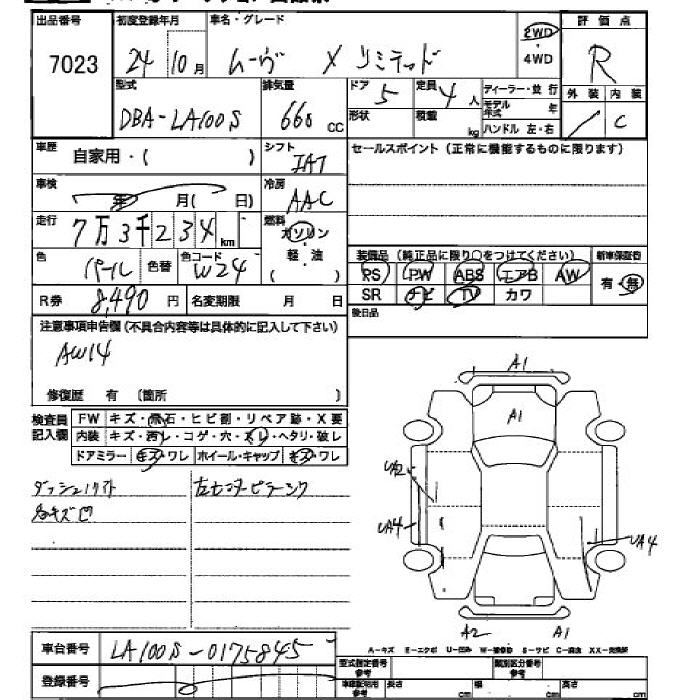 出品番号 初度登録年月 車名・グレード 評価点
7023 24 10月 ムーヴ X リミテッド 2WD・4WD R
型式 DBA-LA100S 排気量 660 cc ドア 5 定員 4人 ディーラー・並行
形状 積載 kg モデル年式 年 ハンドル 左・右
外装 内装
/ C
車歴 自家用・( ) シフト IAT
セールスポイント (正常に機能するものに限ります)
車検 年 月( 日) 冷房 AAC
走行 7万3千234km 燃料 ガソリン・軽油 ( )
色 パール 色替 色コード W24
装備品 (純正品に限り○をつけてください) 新車保証書
PS PW ABS エアB AW 有・無
SR ナビ TV カワ
R券 8,490円 名変期限 月 日
後日品
注意事項申告欄 (不具合内容等は具体的に記入して下さい)
AW14
修復歴 有 〔箇所 〕
検査員記入欄 FW キズ・飛石・ヒビ割・リペア跡・X要
内装 キズ・汚レ・コゲ・穴・スレ・ヘタリ・破レ
ドアミラー キズ・ワレ ホイール・キャップ キズ・ワレ
A1
A1
UA2
UA4
UA4
A2 A1
A-キズ E-エクボ U-凹み W-補修跡 S-サビ C-腐食 XX-交換済
車台番号 LA100S-0175845
登録番号
型式指定番号 参考 類別区分番号 参考
長さ cm 幅 cm 高さ cm